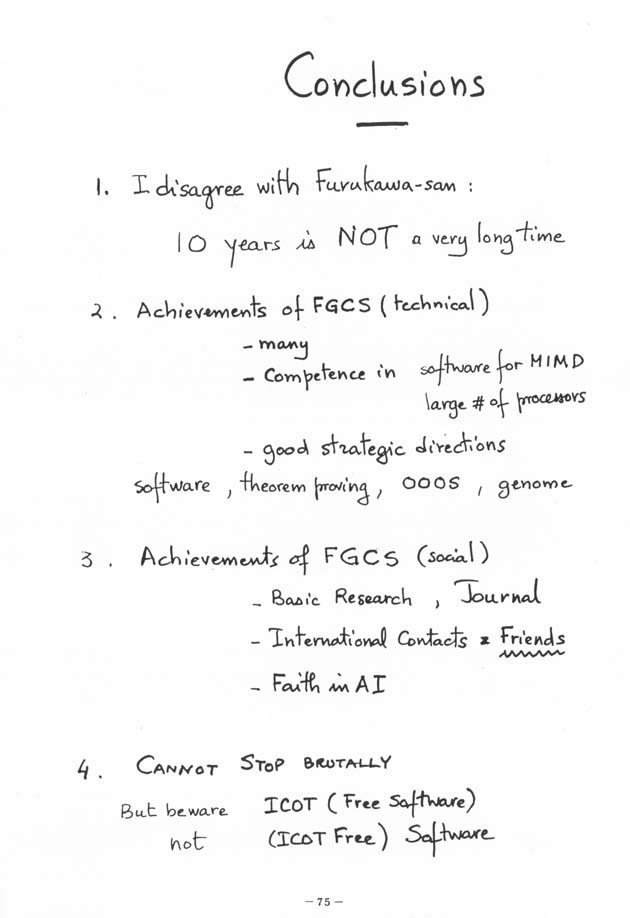 Conclusions
1. I disagree with Furukawa-san :
10 years is NOT a very long time
2. Achievements of FGCS (technical)
- many
- Competence in software for MIMD
large # of processors
- good strategic directions
software , theorem proving, OOOS , genome
3. Achievements of FGCS (social)
- Basic Research , Journal
- International Contacts & Friends
- Faith in AI
4. CANNOT STOP BRUTALLY
But beware ICOT (Free Software)
not (ICOT Free) Software
- 75 -